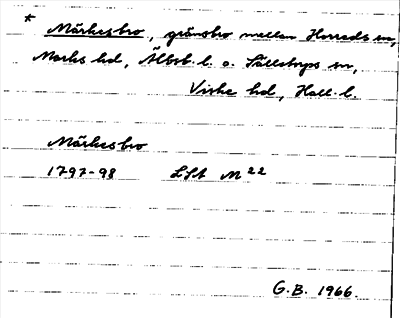 * Märkesbro, gränsbro mellan Horreds sn,
Marks hd, Älvsb. l. o. Sällstorps sn,
Viske hd, Hall. l.
Märkesbro
1797-98 LSA M 22
G.B. 1966.